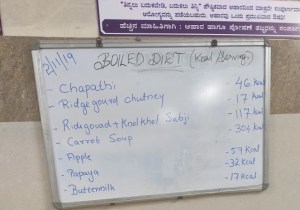 "ತಿನ್ನಲು ಬದುಕಬೇಡಿ, ಬದುಕಲು ತಿನ್ನಿ"
ಹೆಚ್ಚಿನ ಮಾಹಿತಿಗಾಗಿ : ಆಹಾರ ಹಾಗೂ ಪೋಷಣೆ
2/11/19
BOILED DIET (Kcal / Serving)
- Chapathi - 46 Kcal
- Ridgegourd chutney - 17 Kcal
- Ridgegourd + Knolkhol Sabji - 117 Kcal
- Carrot Soup - 304 Kcal
- Apple - 57 Kcal
- Papaya - 32 Kcal
- Buttermilk - 17 Kcal